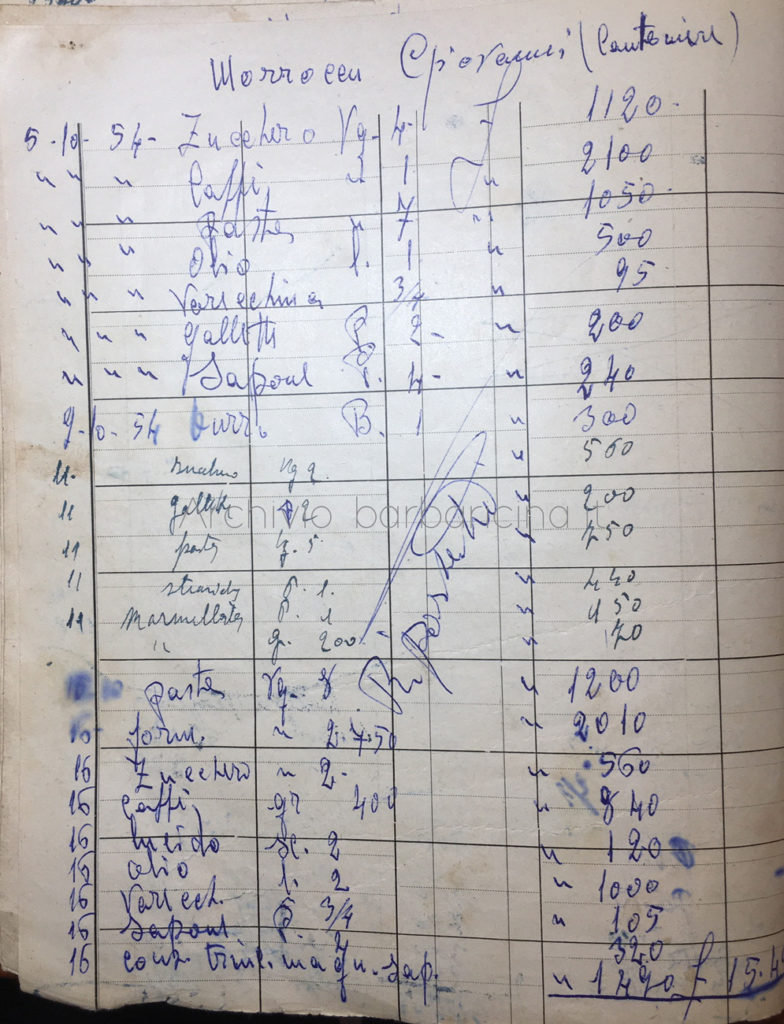 Morroceu Giovanni (Cantoniere)
5-10-54- Zucchero Kg. 4 " 1120-
" " " Caffè " 1 " 2100
" " " Pasta " 7 " 1050-
" " " Olio l. 1 " 500
" " " Varecchina 3/4 " 95
" " " Galletti P. 2- " 200
" " " Sapone P. 4- " 240
9-10-54 burro B. 1 " 300
11- zucchero Kg 2. " 560
11 gallett P 2 " 200
11 pasta K. 5 " 750
11 P. 1. "
11 Marmellata P. 1 " 150
" g. 200 " 70
Riportato
Archivio barbaricina.it
pasta Kg. 8 " 1200
form. " 2.750 " 2010
16 Zucchero " 2- " 560
16 Caffè gr 400 " 840
16 lucido sc. 2 " 120
16 olio l. 2 " 1000
16 Varecch. 3/4 " 105
16 Sapone P. 2 320
16 conz. trinc. sap. " 1490 £ 15.